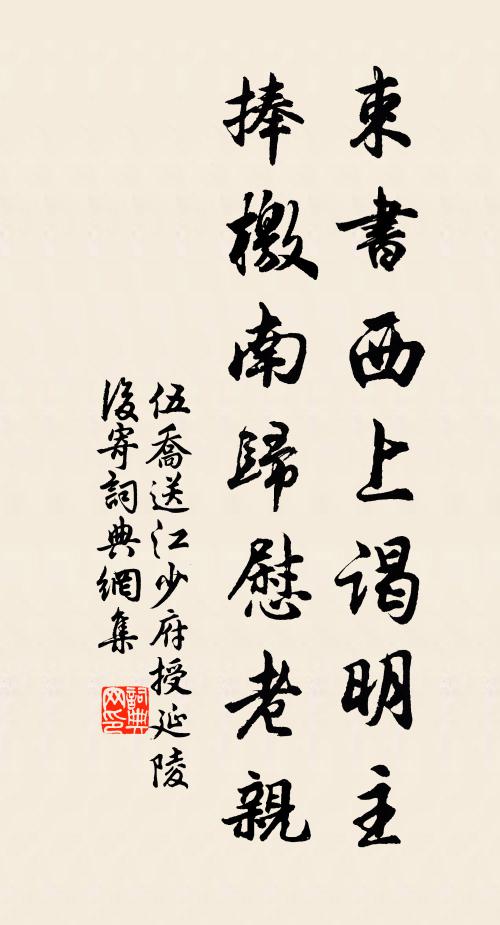 束書西上謁明主
捧檄南歸慰老親
伍喬送江少府授延陵
後寄詞典網集
詞典
网印